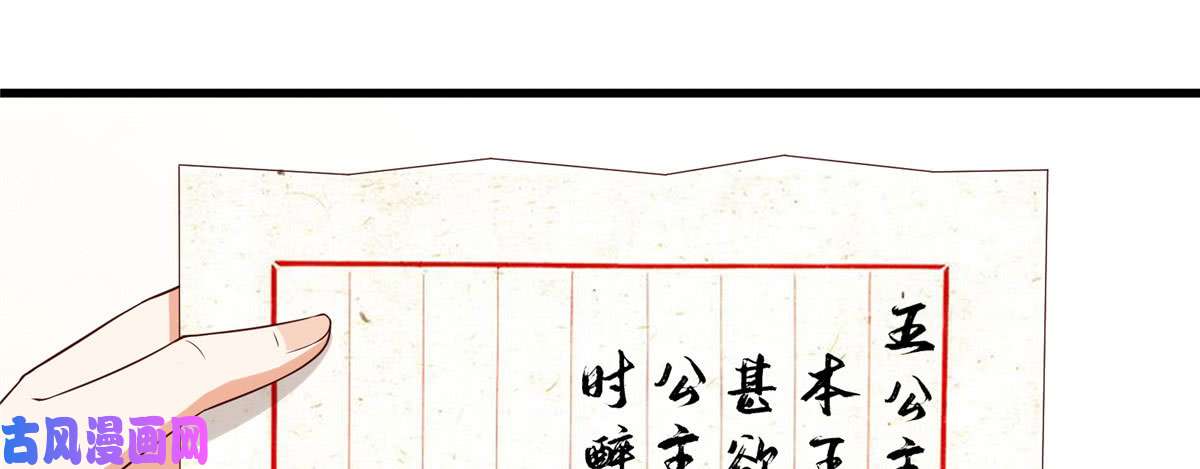 五公主
本王
甚欲
公主
时醉
古风漫画网